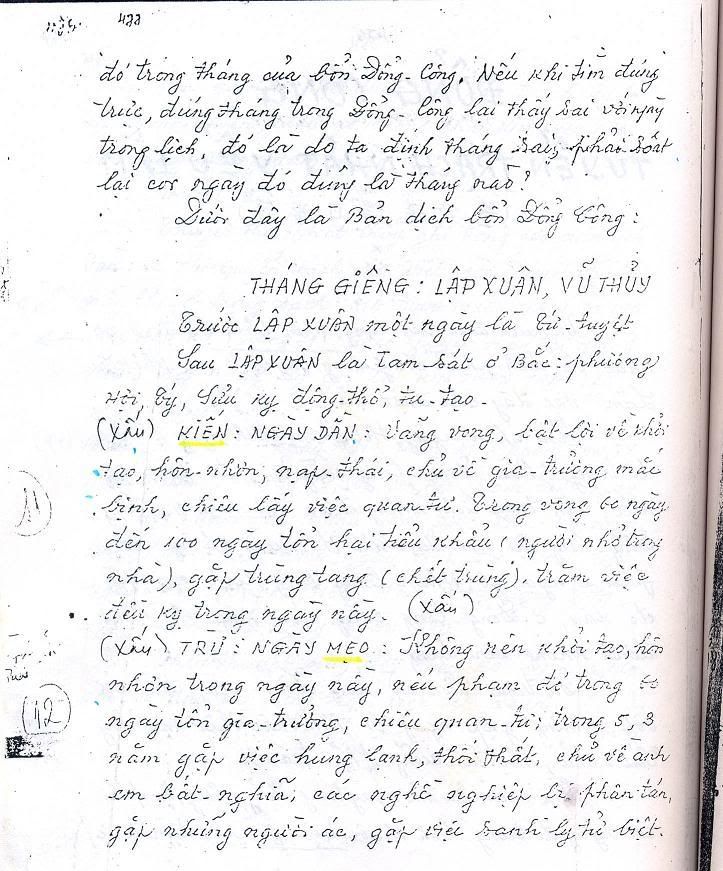 422
đó trong tháng của bổn Đổng-Công. Nếu khi tìm đúng
trực, đúng tháng trong Đổng-Công lại thấy sai với ngày
trong lịch, đó là do ta định tháng sai, phải soát
lại coi ngày đó đúng là tháng nào?
Dưới đây là Bản dịch bổn Đổng Công:
THÁNG GIÊNG: LẬP XUÂN, VŨ THỦY
Trước LẬP XUÂN một ngày là Tứ-tuyệt
Sau LẬP XUÂN là Tam-sát ở Bắc: phương
Hợi, Tý, Sửu kỵ động-thổ, tu-tạo-
(Xấu) KIẾN: NGÀY DẦN: Vãng vong, bất lợi về khởi
tạo, hôn-nhơn, nạp-thái, chủ về gia-trưởng mắc
bịnh, chiêu lấy việc quan-tư. Trong vòng 60 ngày
đến 100 ngày tổn hai tiểu khẩu (người nhỏ trong
nhà), gặp trùng tang (chết trùng). trăm việc
đều kỵ trong ngày này. (Xấu)
11
(Xấu) TRỪ: NGÀY MẸO: Không nên khởi tạo, hôn
nhơn trong ngày này, nếu phạm đó trong 60
ngày tổn gia-trưởng, chiêu quan-tư; trong 5, 3
năm gặp việc hung lạnh, thối thất, chủ về anh
em bất-nghĩa; các nghề nghiệp bị phân tán,
gặp những người ác, gặp việc sanh ly tử biệt.
12